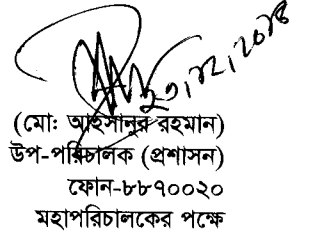 ২৩/১২/২০১৪
(মো: আহসানুর রহমান)
উপ-পরিচালক (প্রশাসন)
ফোন-৮৮৭০০২০
মহাপরিচালকের পক্ষে